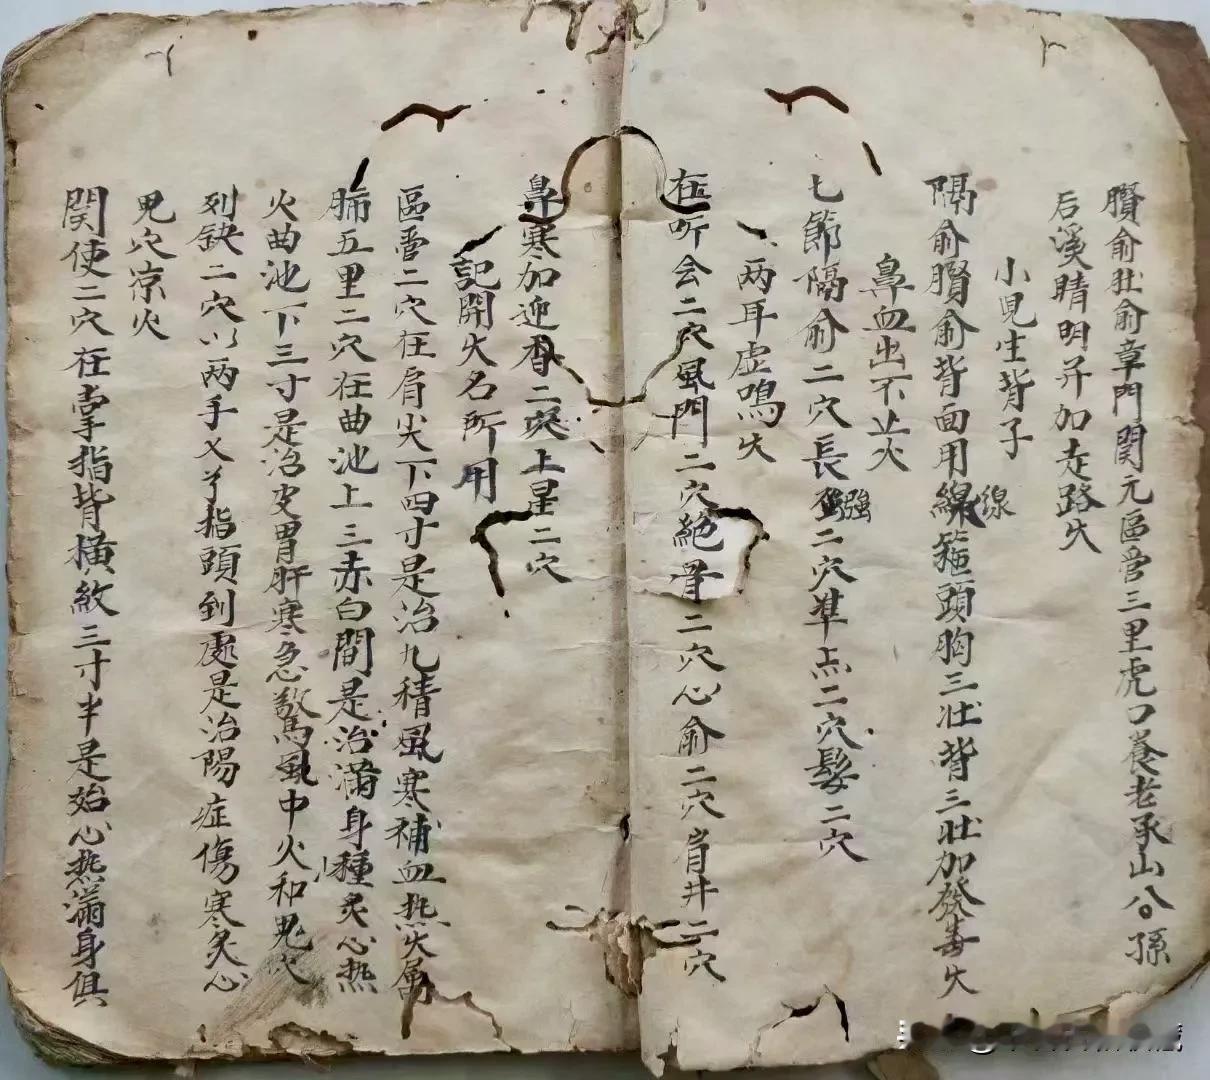 膶俞肚俞章門関元區雪三里虎口養老承山公孫
后溪睛明并加走路火
小児生背子
隔俞膶俞背面用線箍頭胸三壯背三壯加發毒火
鼻血出不止火
七節隔俞二穴長強二穴準点二穴髮二穴
两耳虚鳴火
在听会二穴風門二穴絕骨二穴心俞二穴肩井二穴
鼻寒加迎香二穴上星二穴
記開火名所用
區雪二穴在肩尖下四寸是治九積風寒補血热火属
肺五里二穴在曲池上三赤白間是治满身種炙心热
火曲池下三寸是治皮胃肝寒急驚風中火和鬼火
列缺二穴以两手乂指頭到處是治陽症傷寒炙心
鬼穴凉火
関使二穴在掌指背横紋三寸半是始心热滿身俱